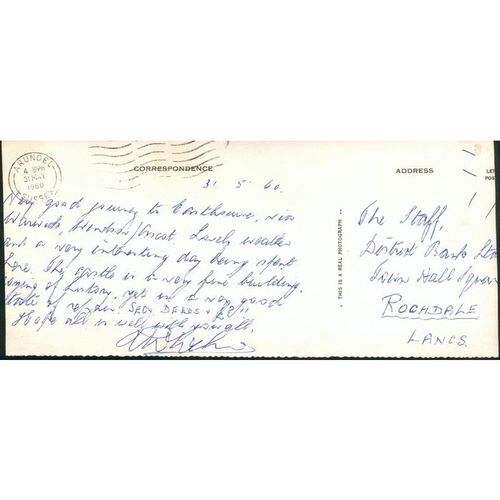 ARUNDEL
4 30PM
31 MAY
1960
SUSSEX
CORRESPONDENCE
31. 5. 60.
Very good journey to
and a very interesting day being spent
here. The castle is a very fine building,
of history, yet in a very good
state of repair. DEEDS
Hope all is well with you all.
THIS IS A REAL PHOTOGRAPH
ADDRESS
The Staff,
District Bank Ltd
Town Hall Square
ROCHDALE
LANCS.